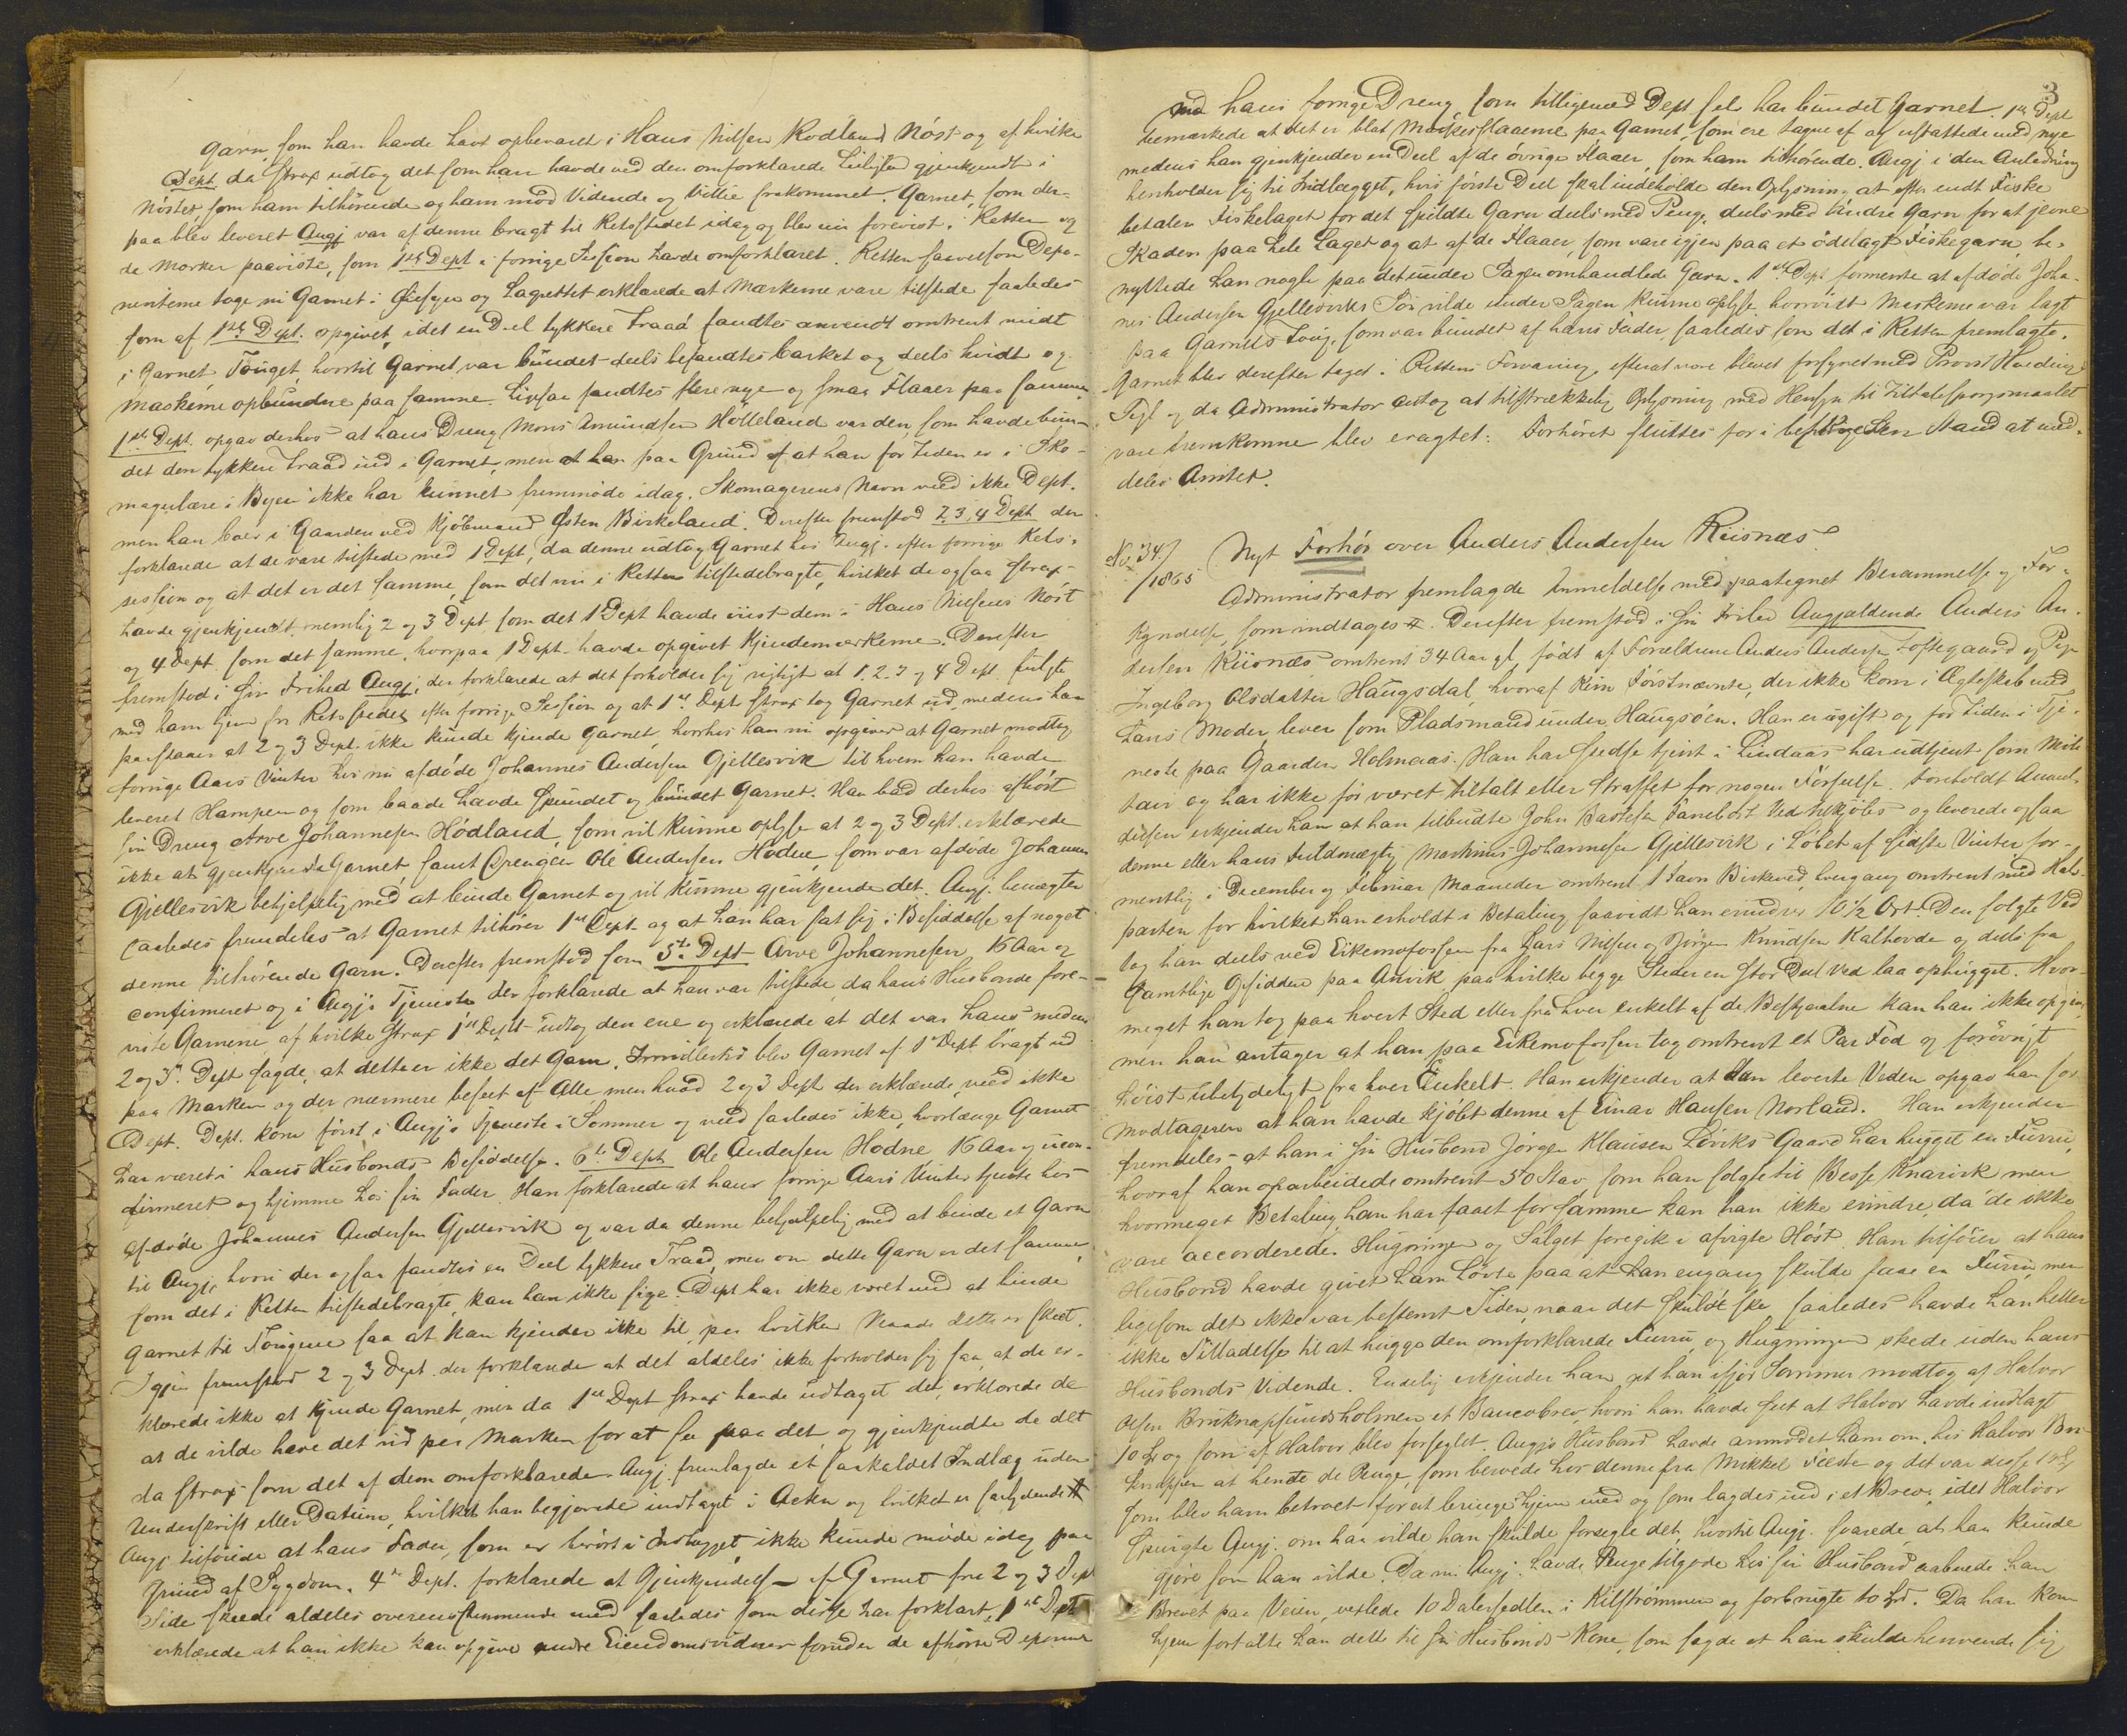 Garn, som han havde havt opbevaret i Hans Nilsen Rodland Nøst og af hvilke
Dept. da strax udtog det som han havde ved den omforklarede Leilighed gjenkjendt i
Nøstet, som ham tilhørende og ham mod Vidende og Villie frakommet. Garnet, som der-
paa blev leveret Angj var af denne bragt til Retsstedet idag og blev nu forevist i Retten og
de Mærker paaviste, som 1ste Dept i forrige Session havde omforklaret. Retten saavelsom Depo-
nenterne toge nu Garnet i Øiesyn og Lagrettet erklærede at Mærkerne vare tilstede saaledes
som af 1ste Dept. opgivet, idet en Deel tykkere Traad fandtes anvendt omtrent midt
i Garnet, Touget, hvortil Garnet var bundet deels befandtes barket og deels hvidt og
Maskerne opbundne paa samme. Ligesaa fandtes flere nye og smaa Flaaer paa samme.
1ste Dept. opgav derhos at hans Dreng Mons Amundsen Hølleland var den, som havde bun-
det den tykkere Traad ind i Garnet, men at han paa Grund af at han for Tiden er i Sko-
magerlære i Byen ikke har kunnet fremmøde idag. Skomagerens Navn veed ikke Dept.
men han boer i Gaarden ved Kjøbmand Østen Birkeland. Derefter fremstod 2, 3, 4 Dept. der
forklarede at de vare tilstede med 1 Dept, da denne udtog Garnet hos Angj. efter forrige Rets-
session og at det er det samme, som det nu i Retten tilstedebragte, hvilket de ogsaa strax
havde gjenkjendt, nemlig 2 og 3 Dept som det 1 Dept havde viist dem i Hans Nilsens Nøst
og 4 Dept. som det samme, hvorpaa 1 Dept. havde opgivet Kjendemærkerne. Derefter
fremstod i sin Frihed Angj, der forklarede at det forholder sig rigtigt at 1. 2. 3 og 4 Dept fulgte
med ham hjem fra Retsstedet efter forrige Session og at 1ste Dept strax tog Garnet ud, medens han
paastaar at 2 og 3 Dept. ikke kunde kjende Garnet, hvorhos han nu opgiver at Garnet modtog
forrige Aars Vinter hos nu afdøde Johannes Andersen Gjellesvik til hvem han havde
leveret Hampen og som baade havde spundet og bundet Garnet. Han bad derhos afhørt
sin Dreng Arve Johannesen Hødland, som vil kunne oplyse at 2 og 3 Dept. erklærede
ikke at gjenkjende Garnet, samt Drengen Ole Andersen Hodne, som var afdøde Johannes
Gjellesvik behjelpelig med at binde Garnet og vil kunne gjenkjende det. Angj. benægter
saaledes fremdeles at Garnet tilhører 1ste Dept. og at han har sat sig i Besiddelse af noget
denne tilhørende Garn. Derefter fremstod som 5te Dept Arve Johannesen 16 Aar og
confirmeret og i Angjs Tjeneste der forklarede at han var tilstede, da hans Husbonde fore-
viste Garnene af hvilke strax 1ste Dept udtog den ene og erklærede at det var hans medens
2 og 3de Dept sagde, at dette er ikke det Garn. Imidlertid blev Garnet af 1ste Dept bragt ud
paa Marken og der nærmere beseet af Alle, men hvad 2 og 3 Dept der erklærede, veed ikke
Dept. Dept. kom først i Angjs Tjeneste i Sommer og veed saaledes ikke, hvorlænge Garnet
har været i hans Husbonds Besiddelse. 6te Dept Ole Andersen Hodne 16 Aar og ucon-
firmeret og hjemme hos sin Fader. Han forklarede at han forrige Aars Vinter tjente hos
afdøde Johannes Andersen Gjellesvik og var da denne behjælpelig med at binde et Garn
til Angj, hvori der ogsaa fandtes en Deel tykkere Traad, men om dette Garn er det samme
som det i Retten tilstedebragte, kan han ikke sige. Dept har ikke været med at binde
Garnet til Tougene saa at han kjender ikke til paa hvilken Maade dette er skeet.
Igjen fremstod 2 og 3 Dept. der forklarede at det aldeles ikke forholder sig saa, at de er-
klærede ikke at kjende Garnet, men da 1ste Dept strax havde udtaget det, erklærede de
at de vilde have det ud paa Marken for at see paa det og gjenkjendte de det
da strax som det af dem omforklarede. Angj. fremlagde et saakaldet Indlæg uden
Underskrift eller Datum, hvilket han begjærede indtaget i Acten og hvilket er saalydende #
Angj. tilføiede at hans Fader, som er berørt i Indlægget, ikke kunde møde idag paa
Grund af Sygdom. 4de Dept. forklarede at Gjenkjendelse af Garnet fra 2 og 3 Dept
Side skeede aldeles overensstemmende med saaledes som disse har forklart. 1ste Dept
erklærede at han ikke kan opgive andre Eiendomsvidner foruden de afhørte Deponent
3
end hans forrige Dreng, som tilligemed Dept. selv har bundet Garnet. 1ste Dept
bemærkede at det er blot Mærkesflaaerne paa Garnet, som ere tagne af og erstattede med nye
medens han gjenkjender en Deel af de øvrige Flaaer, som ham tilhørende. Angj i den Anledning
henholder sig til Indlægget, hvis første Deel skal indeholde den Oplysning at efter endt Fiske
betaler Fiskelaget for det spildte Garn deels med Penge, deels med andre Garn for at jevne
Skaden paa hele Laget og at af de Flaaer, som vare igjen paa et ødelagt Fiskegarn, be-
nyttede han nogle paa det under Sagen omhandlede Garn. 1ste Dept formente at afdøde Joha-
nes Andersen Gjellesviks Søn vilde under Sagen kunne oplyse hvorvidt Mærkerne var lagt
paa Garnets Toug, som var bundet af hans Fader, saaledes som det i Retten fremlagte.
Garnet blev derefter taget i Rettens Forvaring, efterat være blevet forsynet med Provst Hardings
Segl og da Administrator antog at tilstrækkelig Oplysning med Hensyn til Tiltalespørgsmaalet
vare fremkomne blev eragtet: Forhøret sluttes for i beskreven Stand at med-
deles Amtet.
No 34/
/1865
Nyt Forhør over Anders Andersen Riisnæs
Administrator fremlagde Anmeldelse med paategnet Berammelse og For-
kyndelse, som indtages #. Derefter fremstod i sin Frihed Angjældende Anders An-
dersen Riisnæs omtrent 34 Aar gl, født af Forældrene Anders Andersen Toftegaard og Pige
Ingeborg Olsdatter Haugsdal, hvoraf kun Førstnævnte, der ikke kom i Ægteskab med
hans Moder, lever som Pladsmand under Haugsøen. Han er ugift og for Tiden i Tje-
neste paa Gaarden Holmaas. Han har stedse tjent i Lindaas har udtjent som Mili-
tair og har ikke før været tiltalt eller straffet for nogen Forseelse. Foreholdt Anmel-
delsen erkjender han at han tilbudte John Bastesen Fanebost Ved tilkjøbs og leverede ogsaa
denne eller hans Fuldmægtig Martinus Johannesen Gjellesvik i Løbet af sidste Vinter for-
mentlig i December og Februar Maaneder omtrent 1 Favn Birkeved, hvergang omtrent med Halv-
parten for hvilket han erholdt i Betaling saavidt han erindrer 10½ Ort. Den solgte Ved
tog han deels ved Eikemofossen fra Lars Nilsen og Jørgen Knudsen Kalhovde og deels fra
samtlige Opsiddere paa Anvik, paa hvilke begge Steder en stor Deel Ved laa ophugget. Hvor-
meget han tog paa hvert Sted eller fra hver enkelt af de Bestjaalne kan han ikke opgive
men han antager at han paa Eikemofossen tog omtrent et Par Fod og forøvrigt
høist ubetydeligt fra hver Enkelt. Han erkjender at da han leverte Veden opgav han for
Modtageren at han havde kjøbt denne af Einar Hansen Norland. Han erkjender
fremdeles at han i sin Husbond Jørgen Klausen Løviks Gaard har hugget en Furru,
hvoraf han oparbeidede omtrent 50 Stav som han solgte til Besse Knarvik men
hvormeget Betaling han har faaet for samme kan han ikke erindre, da de ikke
vare accorderede. Hugningen og Salget foregik i afvigte Høst. Han tilføier at hans
Husbond havde givet ham Løvte paa at han engang skulde faae en Furru, men
ligesom det ikke var bestemt Tiden, naar det skulde ske, saaledes havde han heller
ikke Tilladelse til at hugge den omforklarede Furru og Hugningen skede uden hans
Husbonds Vidende. Endelig erkjender han at han ifjor Sommer modtog af Halvor
Olsen Bruknapsundsholmen et Bancobrev, hvori han havde seet at Halvor havde indlagt
10 Spd og som af Halvor blev forseglet. Angjs Husbond havde anmodet ham om, hos Halvor Bru-
knappen at hente de Penge, som beroede hos denne fra Mikkel Feste og det var disse 10 Spd
som blev ham betroet for at bringe hjem med og som lagdes ind i et Brev, idet Halvor
spurgte Angj. om han vilde han skulde forsegle det, hvortil Angj. svarede, at han kunde
gjøre som han vilde. Da nu Angj. havde Penge tilgode hos sin Husbond aabnede han
Brevet paa Veien, vexlede 10 Dalersedlen i Kilstrømmen og forbrugte 10 Spd. Da han kom
hjem fortalte han dette til sin Husbonds Kone, som sagde at han skulde henvende sig